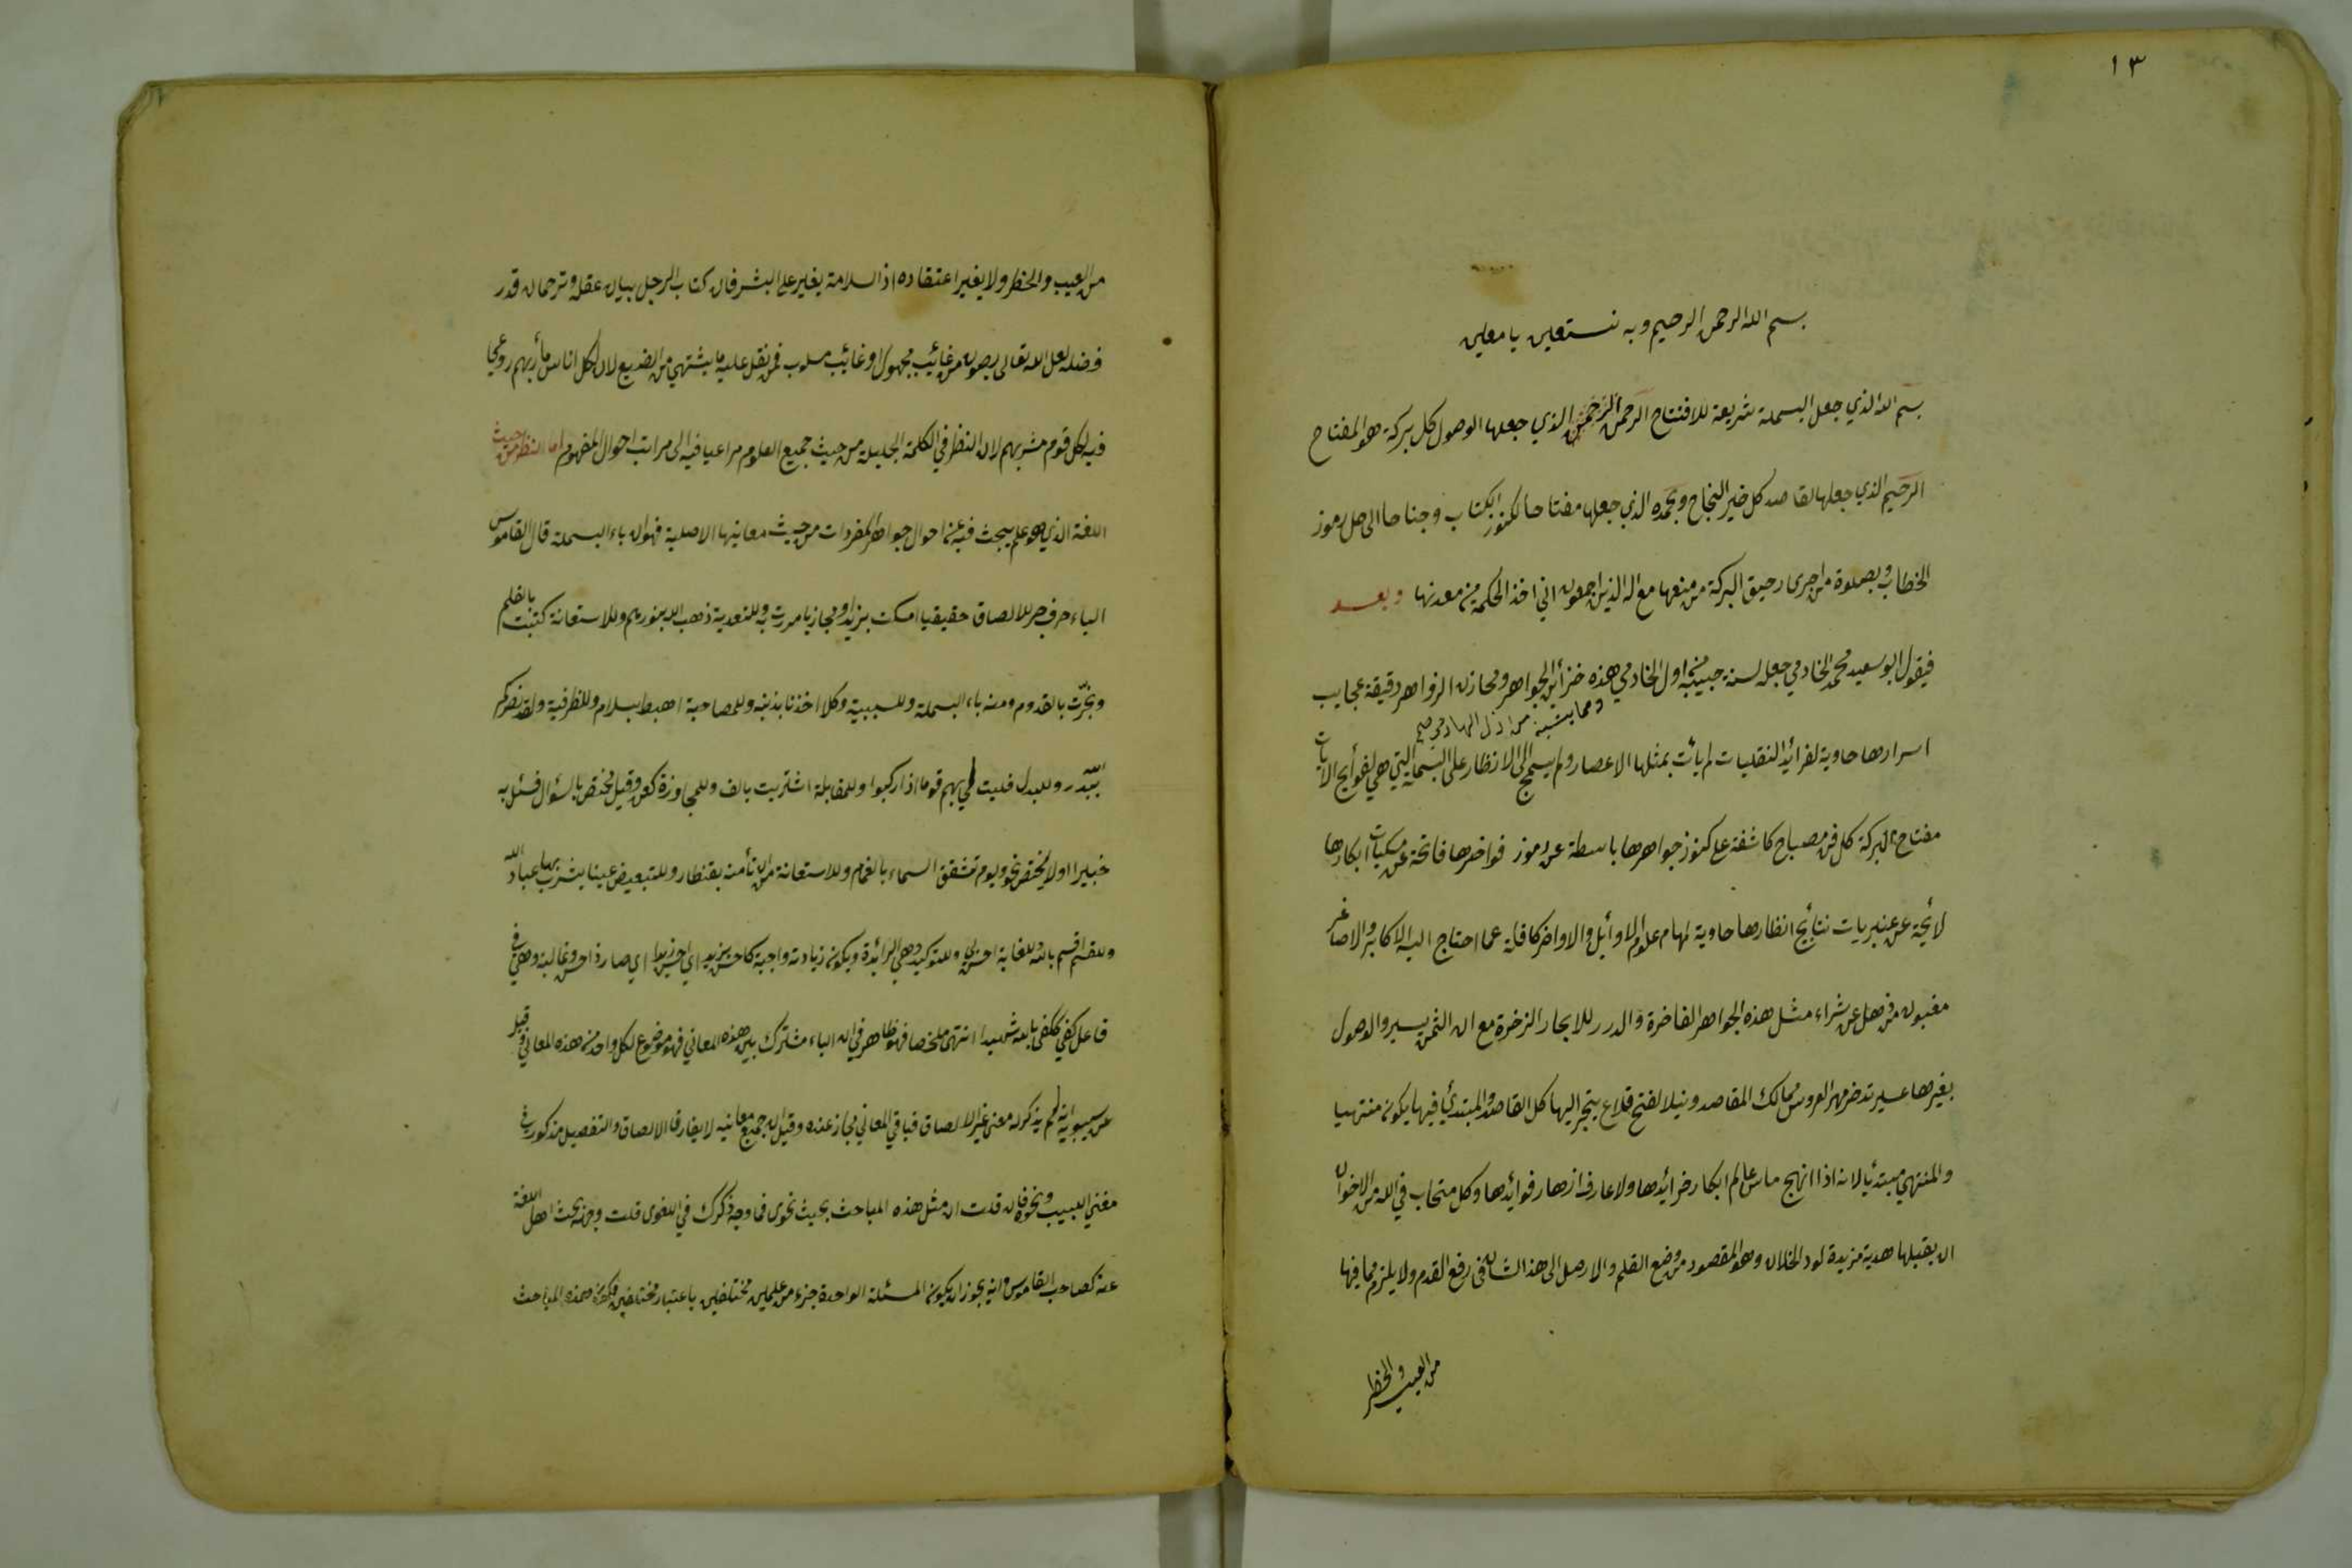 ١٣
بسم الله الرحمن الرحيم وبه نستعين يا معين
بسم الله الذي جعل البسملة شريعة للافتتاح الرحمن الذي جعلها الوصول لكل بركة هو المفتاح
الرحيم الذي جعلها لقاصد كل خير النجاح وبحمده الذي جعلها مفتاحا لكنوز الكتاب وجناحا الى حل رموز
الخطاب وبصلوة من اجرى رحيق البركة من منبعها مع اله الذين اجمعون اني اخذ الحكمة من معدنها وبعد
فيقول ابو سعيد محمد الخادمي جعل لسنة حبيبه اول الخادمي هذه خزائن الجواهر ومخازن الزواهر دقيقة عجايب
اسرارها حاوية لفرائد النقليات لم يأت بمثلها الاعصار ولم يسمح الى الانظار على البسملة التي هي لفواتح الايات
مفتاح البركة كل فن مصباح كاشفة على كنوز جواهرها باسطة عن رموز فواخرها فاتحة عن مسكيات ابكارها
لائحة عن عنبريات نتايج انظارها حاوية لمهام علوم الاوائل والاواخر كافلة عما احتاج اليه الاكابر والاصاغر
مغبون من ذهل عن شراء مثل هذه الجواهر الفاخرة والدرر للابحار الزخرة مع ان الثمن يسير والوصول
بغيرها عسير تدخر مهر العروس ممالك المقاصد ونيلا لفتح قلاع ينجر اليها كل القاصد والمبتدئ فيها يكون منتهيا
والمنتهي مبتدئا لانه اذا انهج ماس عالم ابكار خرائدها ولا عارف ازهار فوائدها وكل متحاب في الله من الاخوان
ان يقبلها هدية مزيدة لود الخلان وهو المقصود من وضع القلم والا رحل الى هذا الشان في رفع القدم ولا يلزم مما فيها
من العيب والخطر
من العيب والخطر ولا يغير اعتقاده اذ السلامة بغير على البشر فان كتاب الرجل بيان عقله وترجمان قدر
فضله لعل الله تعالى يصونه من غائب مجهول او غائب مسلوب فمن نقل عليه ما يشتهي من الصنيع لان لكل اناس مأربهم روعي
فيه لكل قوم مشربهم لان النظر في الكلمة الجليلة من حيث جميع العلوم مراعيا فيه الى مراتب احوال المفهوم اما النظر من حيث
اللغة الذي هو علم يبحث فيه عن احوال جواهر المفردات من حيث معانيها الاصلية فهو ان باء البسملة قال القاموس
الباء حرف جر للالصاق حقيقيا امسكت بزيد او مجازيا مررت به وللتعدية ذهب الله بنورهم وللاستعانة كتبت بالقلم
ونجرت بالقدوم ومنه باء البسملة وللسببية وكلا اخذنا بذنبه وللمصاحبة اهبط بسلام وللظرفية ولقد نصركم
الله ببدر وللبدل فليت لي بهم قوما اذا ركبوا وللمقابلة اشتريت بالف وللمجاوزة كعن وقيل تختص بالسؤال فسئل به
خبيرا اولا يختص نحو ويوم تشقق السماء بالغمام وللاستعانة من ان تأمنه بقنطار وللتبعيض عينا يشرب بها عباد الله
وللقسم اقسم بالله وللغاية احسن بي وللتوكيد وهي الزائدة ويكون زيادته واجبة كاحسن بزيد اي احسن زيد اي صار ذا حسن وغالبة وهي في
فاعل كفى ككفى بالله شهيدا انتهى ملخصا فهو ظاهر في ان الباء مشترك بين هذه المعاني فهو موضوع لكل واحد من هذه المعاني وقيل
عن سيبويه انه لم يذكر له معنى غير الالصاق فباقي المعاني مجاز عنده وقيل ان جميع معانيه لا يفارق الالصاق والتفصيل مذكور في
مغني اللبيب ونحوه فان قلت ان مثل هذه المباحث بحيث نحوى فما وجه ذكرك في اللغوى قلت وجهه بحث اهل اللغة
عنه كصاحب القاموس وانه يجوز ان يكون المسئلة الواحدة جزء من علمين مختلفين باعتبار مختلفين فكون هذه المباحث